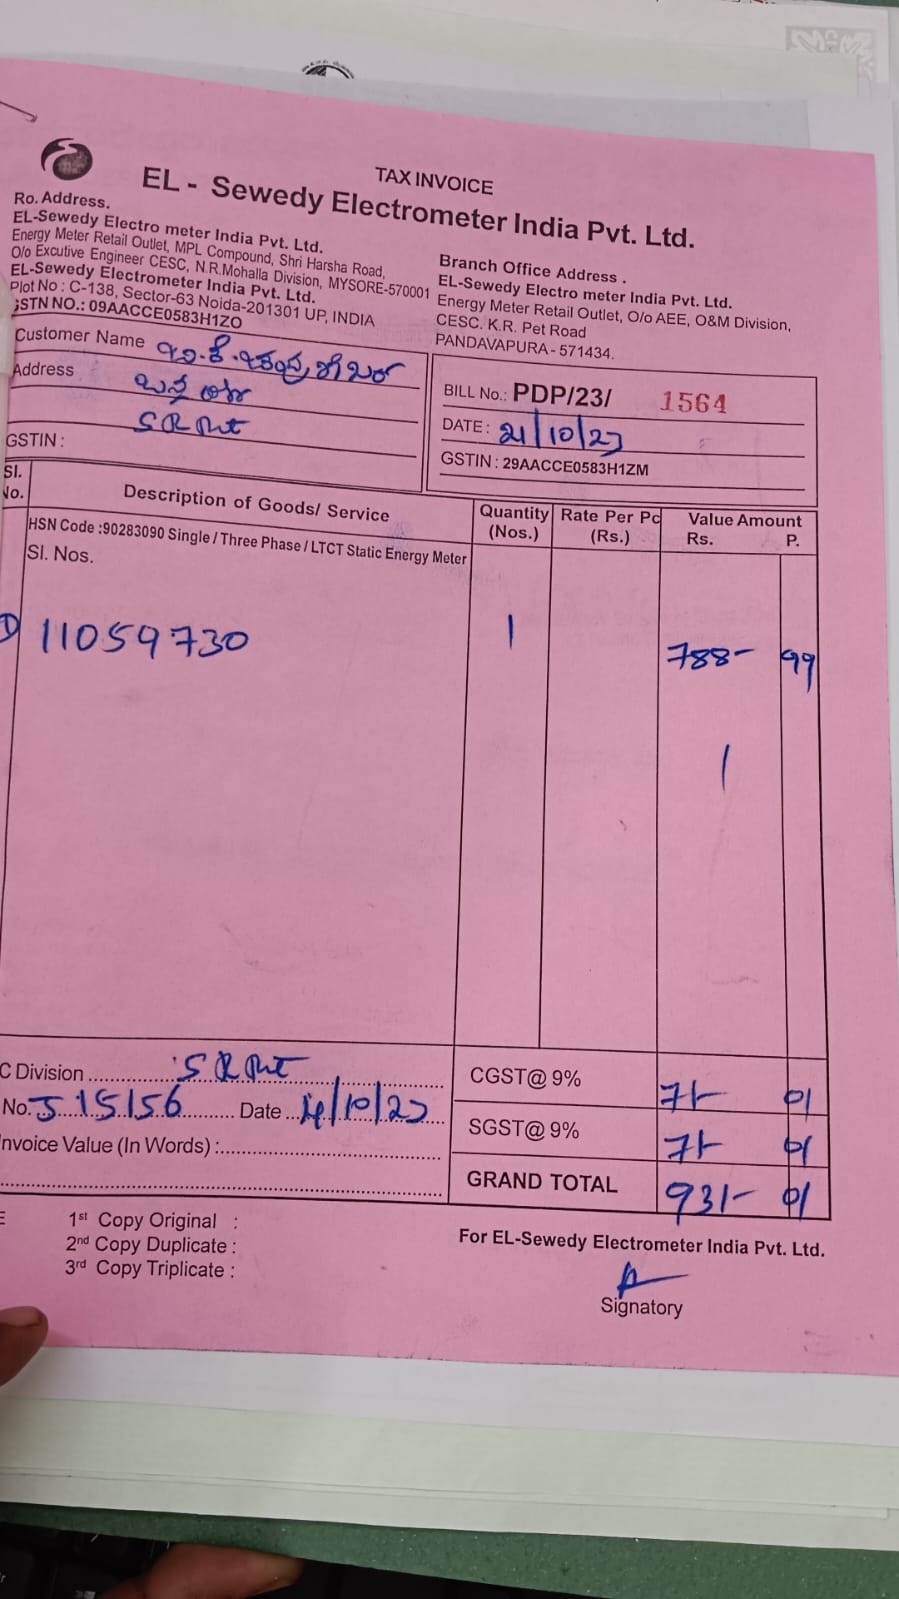 TAX INVOICE
EL - Sewedy Electrometer India Pvt. Ltd.
Ro. Address.
EL-Sewedy Electro meter India Pvt. Ltd.
Energy Meter Retail Outlet, MPL Compound, Shri Harsha Road,
O/o Excutive Engineer CESC, N.R.Mohalla Division, MYSORE-570001
EL-Sewedy Electrometer India Pvt. Ltd.
Plot No : C-138, Sector-63 Noida-201301 UP, INDIA
GSTN NO.: 09AACCE0583H1ZO
Branch Office Address .
EL-Sewedy Electro meter India Pvt. Ltd.
Energy Meter Retail Outlet, O/o AEE, O&M Division,
CESC. K.R. Pet Road
PANDAVAPURA - 571434.
Customer Name
Address
SRPnt
GSTIN :
BILL No.: PDP/23/ 1564
DATE : 21/10/23
GSTIN : 29AACCE0583H1ZM
Sl. No. Description of Goods/ Service Quantity (Nos.) Rate Per Pc (Rs.) Value Amount Rs. P.
HSN Code :90283090 Single / Three Phase / LTCT Static Energy Meter
Sl. Nos.
1) 11059730 1 788- 99
C Division SRPnt
No. J15156 Date 14/10/23
Invoice Value (In Words) :
CGST@ 9% 71- 01
SGST@ 9% 71- 01
GRAND TOTAL 931- 01
1st Copy Original :
2nd Copy Duplicate :
3rd Copy Triplicate :
For EL-Sewedy Electrometer India Pvt. Ltd.
Signatory